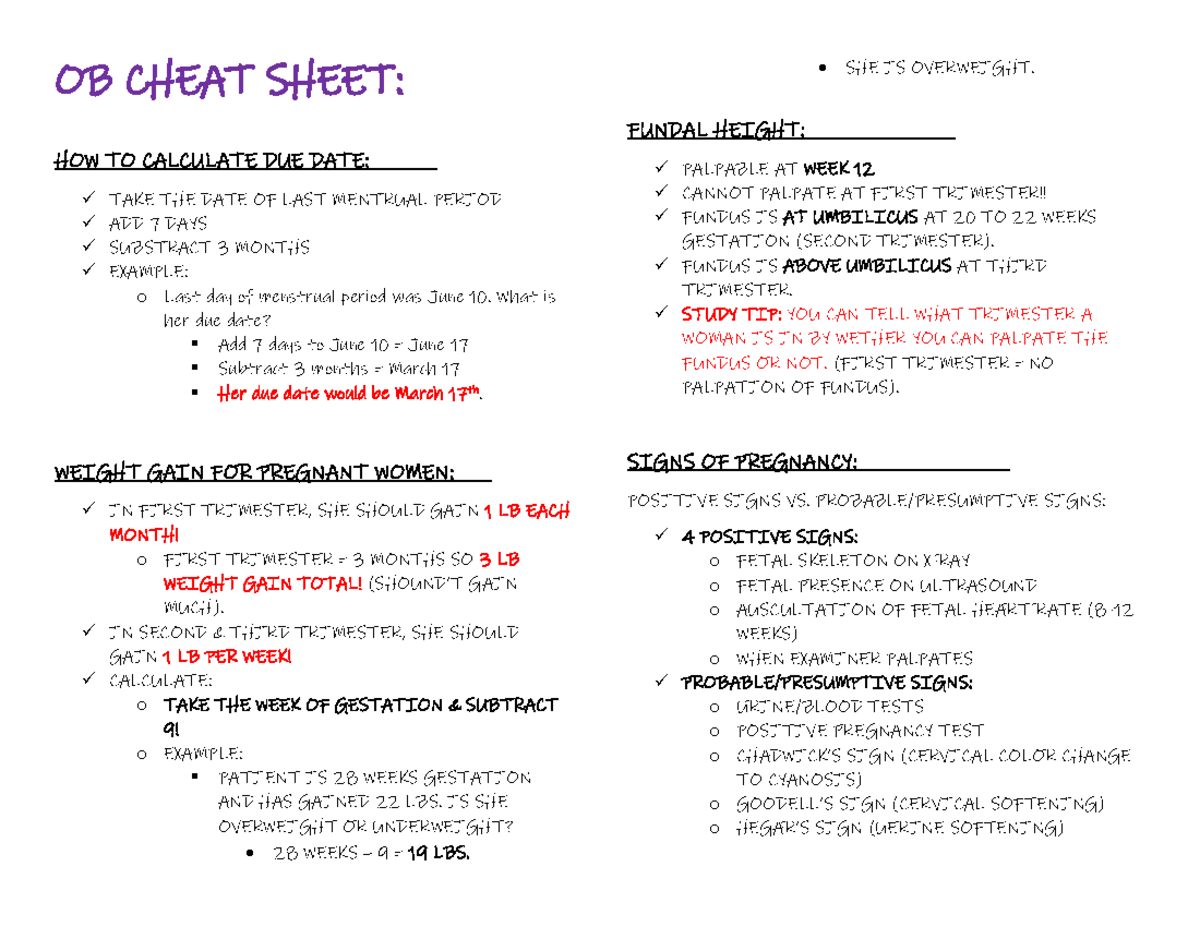 OB CHEAT SHEET:
HOW TO CALCULATE DUE DATE:
✓ TAKE THE DATE OF LAST MENTRUAL PERIOD
✓ ADD 7 DAYS
✓ SUBSTRACT 3 MONTHS
✓ EXAMPLE:
o Last day of menstrual period was June 10. What is
her due date?
▪ Add 7 days to June 10 = June 17
▪ Subtract 3 months = March 17
▪ Her due date would be March 17th.
WEIGHT GAIN FOR PREGNANT WOMEN:
✓ IN FIRST TRIMESTER, SHE SHOULD GAIN 1 LB EACH
MONTH!
o FIRST TRIMESTER = 3 MONTHS SO 3 LB
WEIGHT GAIN TOTAL! (SHOUND'T GAIN
MUCH).
✓ IN SECOND & THIRD TRIMESTER, SHE SHOULD
GAIN 1 LB PER WEEK!
✓ CALCULATE:
o TAKE THE WEEK OF GESTATION & SUBTRACT
9!
o EXAMPLE:
▪ PATIENT IS 28 WEEKS GESTATION
AND HAS GAINED 22 LBS. IS SHE
OVERWEIGHT OR UNDERWEIGHT?
• 28 WEEKS – 9 = 19 LBS.
• SHE IS OVERWEIGHT.
FUNDAL HEIGHT:
✓ PALPABLE AT WEEK 12
✓ CANNOT PALPATE AT FIRST TRIMESTER!!
✓ FUNDUS IS AT UMBILICUS AT 20 TO 22 WEEKS
GESTATION (SECOND TRIMESTER).
✓ FUNDUS IS ABOVE UMBILICUS AT THIRD
TRIMESTER.
✓ STUDY TIP: YOU CAN TELL WHAT TRIMESTER A
WOMAN IS IN BY WETHER YOU CAN PALPATE THE
FUNDUS OR NOT. (FIRST TRIMESTER = NO
PALPATION OF FUNDUS).
SIGNS OF PREGNANCY:
POSITIVE SIGNS VS. PROBABLE/PRESUMPTIVE SIGNS:
✓ 4 POSITIVE SIGNS:
o FETAL SKELETON ON X-RAY
o FETAL PRESENCE ON ULTRASOUND
o AUSCULTATION OF FETAL HEART RATE (8-12
WEEKS)
o WHEN EXAMINER PALPATES
✓ PROBABLE/PRESUMPTIVE SIGNS:
o URINE/BLOOD TESTS
o POSITIVE PREGNANCY TEST
o CHADWICK'S SIGN (CERVICAL COLOR CHANGE
TO CYANOSIS)
o GOODELL'S SIGN (CERVICAL SOFTENING)
o HEGAR'S SIGN (UERINE SOFTENING)